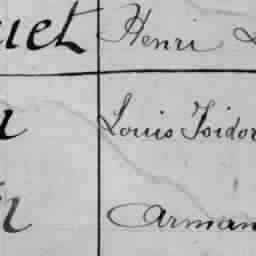 uet Henri
Louis Isidor
Arman